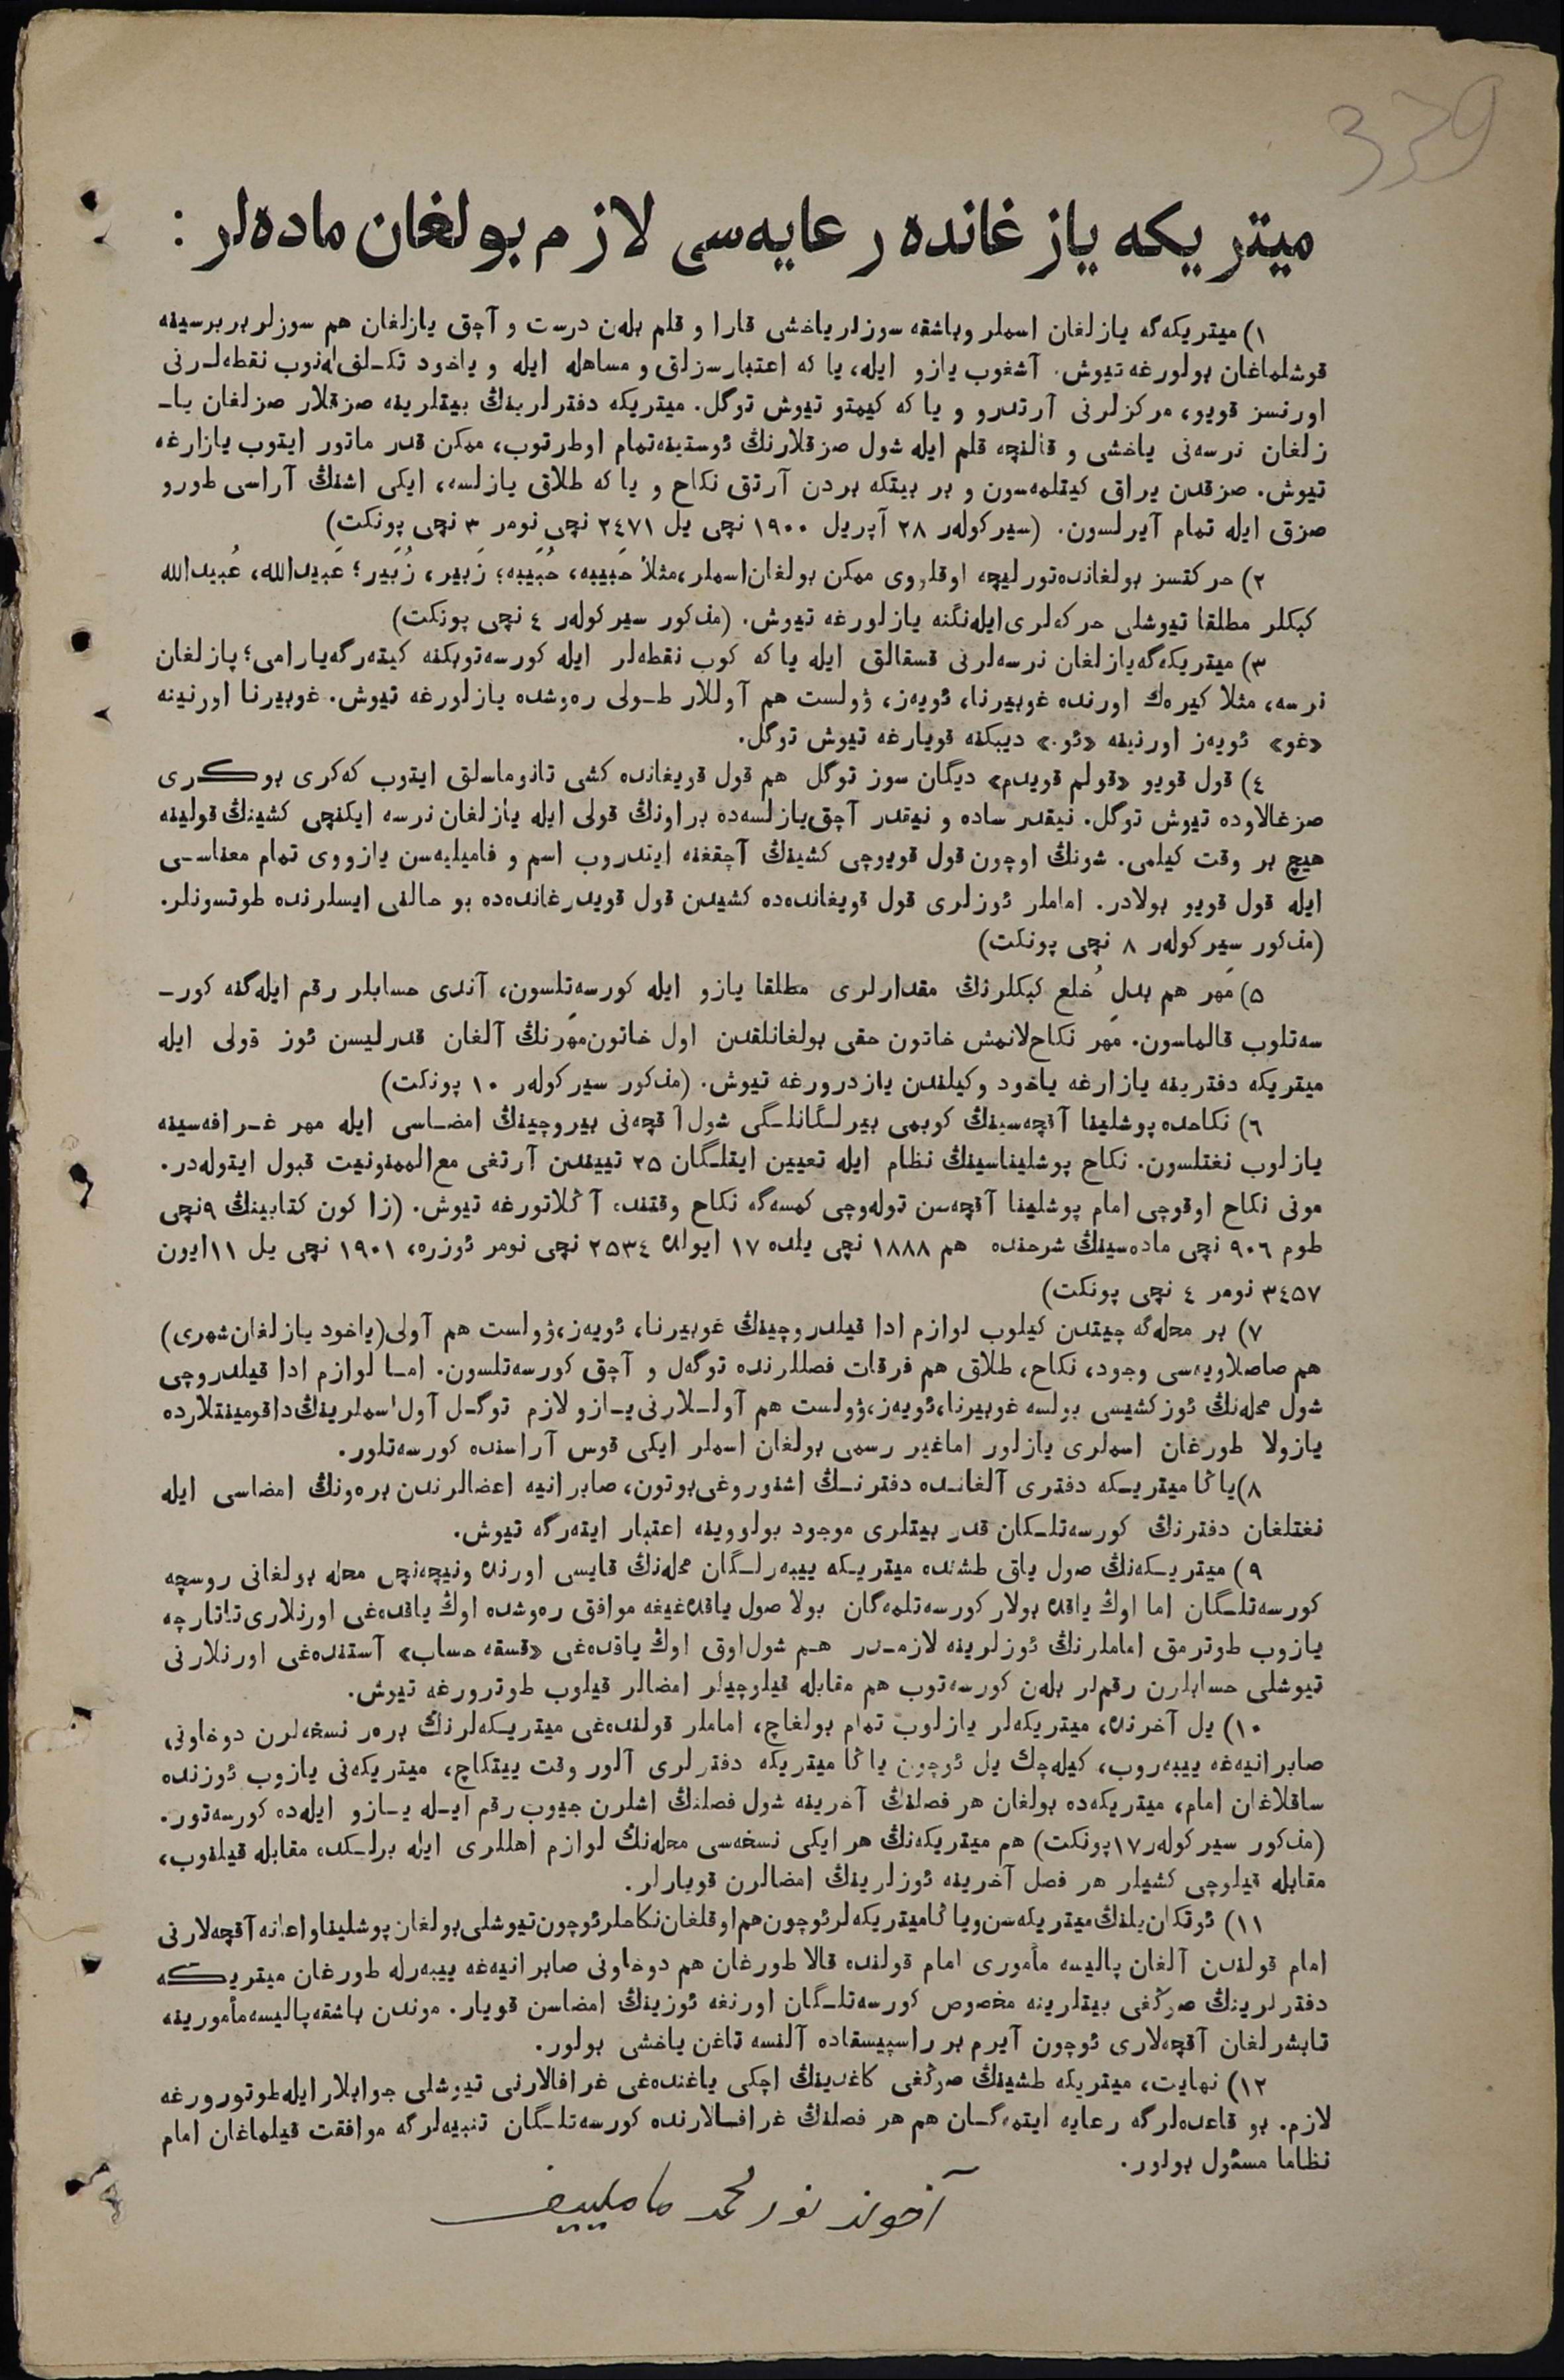 339
ميتريكه يازغانده رعايه‌سى لازم بولغان ماده‌لر :
١) ميتريكه‌گه يازلغان اسملر وباشقه سوزلر ياخشى قارا و قلم بله‌ن درست و آچق يازلغان هم سوزلر بر برسينه
قوشلماغان بولورغه تيوش. آشغوب يازو ايله، يا كه اعتبارسزلق و مساهله ايله و ياخود تكـلف له‌نوب نقطه‌لـرنى
اورنسز قويو، مركزلرنى آرتدرو و يا كه كيمتو تيوش توگل. ميتريكه دفترلرينڭ بيتلرينه صزقلار صزلغان ياـ
زلغان نرسه‌نى ياخشى و قالنچه قلم ايله شول صزقلارنڭ ئوستينه‌تمام اوطرتوب، ممكن قدر ماتور ايتوب يازارغه
تيوش. صزقدن يراق كيتلمه‌سون و بر بيتكه بردن آرتق نكاح و يا كه طلاق يازلسه، ايكى اشنڭ آراسى طورو
صزق ايله تمام آيرلسون. (سيركوله‌ر ٢٨ آپريل ١٩٠٠ نچى يل ٢٤٧١ نچى نومر ٣ نچى پونكت)
٢) حركتسز بولغانده‌تورليچه اوقلووى ممكن بولغان‌اسملر،مثلا حَبيبه، حُبَيبه؛ زَبير، زُبَير؛ عَبيدالله، عُبيدالله
كبكلر مطلقا تيوشلى حركه‌لرى‌ايله‌نگنه يازلورغه تيوش. (مذكور سيركوله‌ر ٤ نچى پونكت)
٣) ميتريكه‌گه‌يازلغان نرسه‌لرنى قسقالق ايله يا كه كوب نقطه‌لر ايله كورسه‌توبكنه كيته‌رگه‌يارامى؛ يازلغان
نرسه، مثلا كيره‌ك اورنده غوبيرنا، ئويه‌ز، ۋولست هم آوللار طـولى ره‌وشده يازلورغه تيوش. غوبيرنا اورنينه
«غو» ئويه‌ز اورنينه «ئو.» ديبكنه قويارغه تيوش توگل.
٤) قول قويو «قولم قويدم» ديگان سوز توگل هم قول قويغانده كشى تانوماسلق ايتوب كه‌كرى بوكرى
صزغالاوده تيوش توگل. نيقدر ساده و نيقدر آچق‌يازلسه‌ده براونڭ قولى ايله يازلغان نرسه ايكنچى كشينڭ قولينه
هيچ بر وقت كيلمى. شونڭ اوچون قول قويوچى كشينڭ آچقغنه ايتدروب اسم و فاميليه‌سن يازووى تمام معناسـى
ايله قول قويو بولادر. اماملر ئوزلرى قول قويغانده‌ده كشيدن قول قويدرغانده‌ده بو حالنى ايسلرنده طوتسونلر.
(مذكور سيركوله‌ر ٨ نچى پونكت)
۵) مَهر هم بدلِ خُلع كبكلرنڭ مقدارلرى مطلقا يازو ايله كورسه‌تلسون، آندى حسابلر رقم ايله‌گنه كورـ
سه‌تلوب قالماسون. مَهر نكاح‌لانمش خاتون حقى بولغانلقدن اول خاتون‌مَهرنڭ آلغان قدرليسن ئوز قولى ايله
ميتريكه دفترينه يازارغه ياخود وكيلندن يازدرورغه تيوش. (مذكور سيركوله‌ر ١٠ پونكت)
٦) نكاحده پوشلينا آقچه‌سينڭ كوبمى بيرلـگانلـگى شول آقچه‌نى بيروچينڭ امضـاسى ايله مهر غـرافه‌سينه
يازلوب نغتلسون. نكاح پوشليناسينڭ نظام ايله تعيين ايتلـگان ٢۵ تييندن آرتغى مع‌الممنونيت قبول ايتوله‌در.
مونى نكاح اوقوچى امام پوشلينا آقچه‌سن توله‌وچى كمسه‌گه نكاح وقتنده آڭلاتورغه تيوش. (زاكون كتابينڭ ٩نچى
طوم ٩٠٦ نچى ماده‌سينڭ شرحنده هم ١٨٨٨ نچى يلده ١٧ ايولده ٢۵٣٤ نچى نومر ئوزره، ١٩٠١ نچى يل ١١ايون
٣٤۵٧ نومر ٤ نچى پونكت)
٧) بر محله‌گه چيتدن كيلوب لوازم ادا قيلدروچينڭ غوبيرنا، ئويه‌ز،ۋولست هم آولى(ياخود يازلغان‌شهرى)
هم صاصلاويه‌سى وجود، نكاح، طلاق هم فرقات فصللرنده توگه‌ل و آچق كورسه‌تلسون. امـا لوازم ادا قيلدروچى
شول محله‌نڭ ئوزكشيسى بولسه غوبيرنا،ئويه‌ز،ۋولست هم آولـلارنى يـازو لازم توگـل آول اسملرينڭ‌داقومينتلارده
يازولا طورغان اسملرى يازلور اماغير رسمى بولغان اسملر ايكى قوس آراسنده كورسه‌تلور.
٨)ياڭا ميتريـكه دفترى آلغانـده دفترنـڭ اشنوروغى‌بوتون، صابرانيه اعضالرندن بره‌ونڭ امضاسى ايله
نغتلغان دفترنڭ كورسه‌تلـكان قدر بيتلرى موجود بولووينه اعتبار ايته‌رگه تيوش.
٩) ميتريـكه‌نڭ صول ياق طشنده ميتريـكه ييبه‌رلـگان محله‌نڭ قايسى اورنده ونيچه‌نچى محله بولغانى روسچه
كورسه‌تلـگان اما اوڭ ياقده بولار كورسه‌تلمه‌گان بولا صول ياقده‌غيغه موافق ره‌وشده اوڭ ياقده‌غى اورنلارى‌تاتارچه
يازوب طوترمق اماملرنڭ ئوزلرينه لازمـدر هـم شول‌اوق اوڭ ياقده‌غى «قسقه حساب» آستنده‌غى اورنلارنى
تيوشلى حسابلرن رقم‌لر بله‌ن كورسه‌توب هم مقابله قيلوچيلر امضالر قيلوب طوترورغه تيوش.
١٠) يل آخرنده، ميتريكه‌لر يازلوب تمام بولغاچ، اماملر قولنده‌غى ميتريـكه‌لرنڭ بره‌ر نسخه‌لرن دوخاونى
صابرانيه‌غه ييبه‌روب، كيله‌چك يل ئوچون ياڭا ميتريكه دفترلرى آلور وقت ييتكاچ، ميتريكه‌نى يازوب ئوزنده
ساقلاغان امام، ميتريكه‌ده بولغان هر فصلنڭ آخرينه شول فصلنڭ اشلرن جيوب رقم ايـله يـازو ايله‌ده كورسه‌تور.
(مذكور سيركوله‌ر١٧پونكت) هم ميتريكه‌نڭ هر ايكى نسخه‌سى محله‌نڭ لوازم اهللرى ايله برلـكده مقابله قيلنوب،
مقابله قيلوچى كشيلر هر فصل آخرينه ئوزلرينڭ امضالرن قويارلر.
١١) ئوتكان‌يلنڭ‌ميتريكه‌سن‌وياڭاميتريكه‌لرئوچون‌هم‌اوقلغان‌نكاحلرئوچون‌تيوشلى‌بولغان‌پوشليناواعانه‌آقچه‌لارنى
امام قولندن آلغان پاليسه مأمورى امام قولنده قالا طورغان هم دوخاونى صابرانيه‌غه ييبه‌رله طورغان ميتريـكه
دفترلرينڭ صوڭغى بيتلرينه مخصوص كورسه‌تلـگان اورنغه ئوزينڭ امضاسن قويار. موندن باشقه‌پاليسه‌مأمورينه
تابشرلغان آقچه‌لارى ئوچون آيرم بر راسپيسقاده آلنسه تاغن ياخشى بولور.
١٢) نهايت، ميتريكه طشينڭ صوڭغى كاغدينڭ اچكى ياغنده‌غى غرافالارنى تيوشلى جوابلارايله‌طوتورورغه
لازم. بو قاعده‌لرگه رعايه ايتمه‌گـان هم هر فصلنڭ غرافـالارنده كورسه‌تلـگان تنبيه‌لرگه موافقت قيلماغان امام
نظاما مسئول بولور.
آخوند نور محمد مامليييف